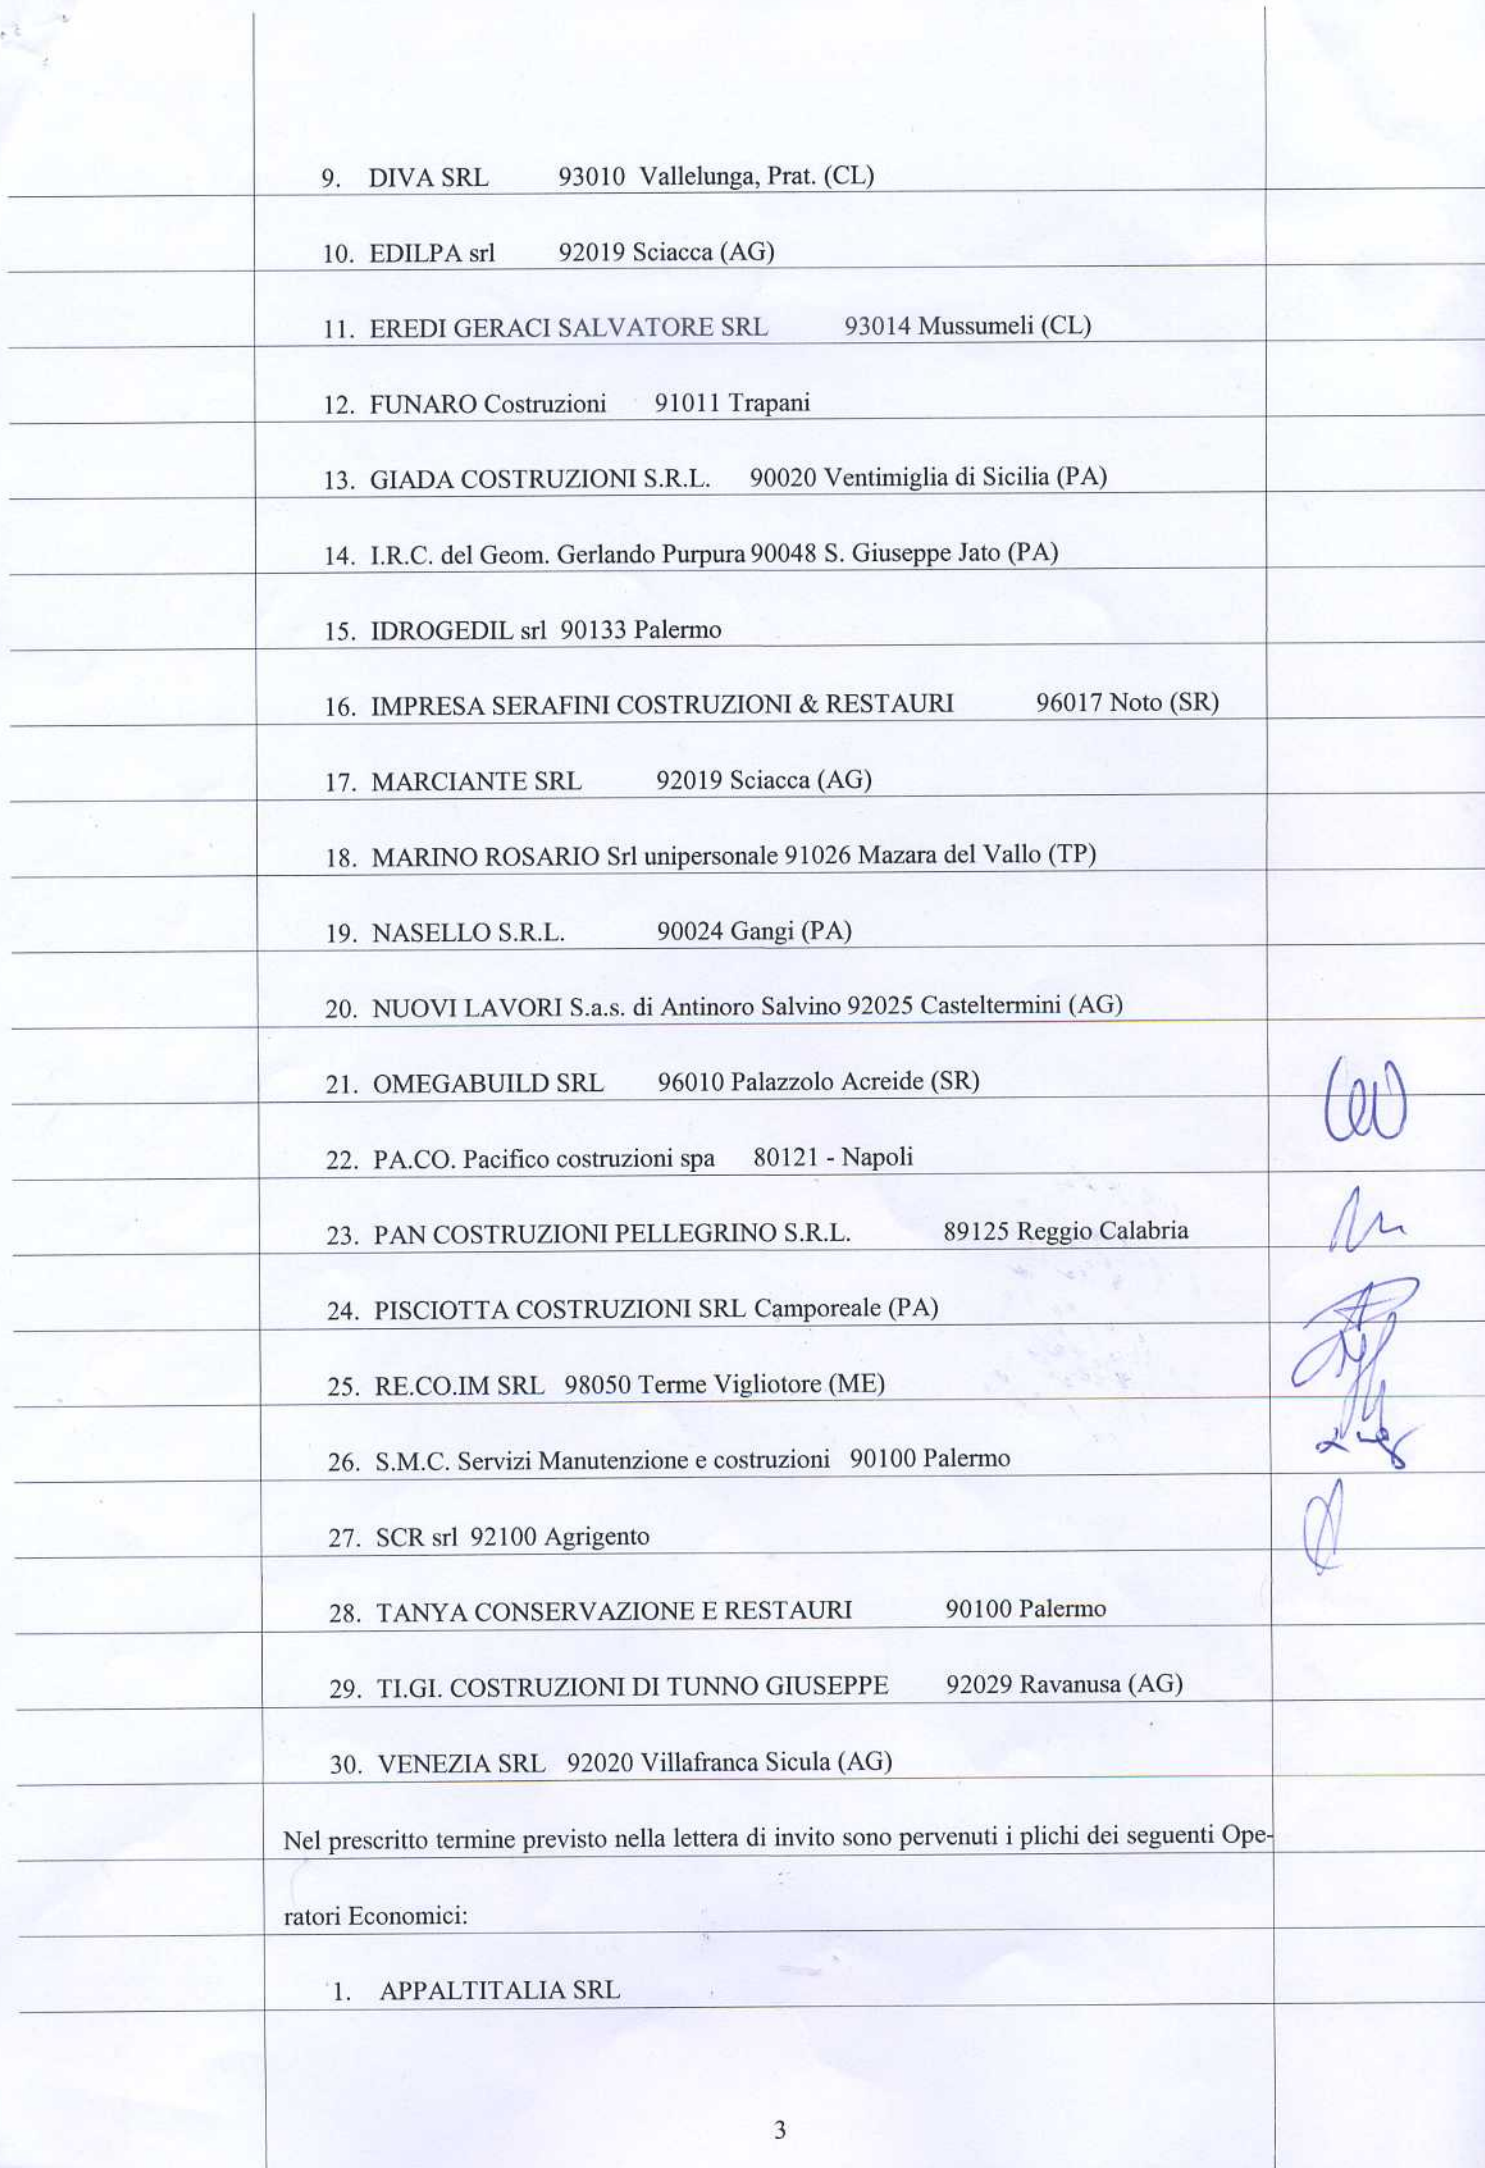 9. DIVA SRL 93010 Vallelunga, Prat. (CL)
10. EDILPA srl 92019 Sciacca (AG)
11. EREDI GERACI SALVATORE SRL 93014 Mussumeli (CL)
12. FUNARO Costruzioni 91011 Trapani
13. GIADA COSTRUZIONI S.R.L. 90020 Ventimiglia di Sicilia (PA)
14. I.R.C. del Geom. Gerlando Purpura 90048 S. Giuseppe Jato (PA)
15. IDROGEDIL srl 90133 Palermo
16. IMPRESA SERAFINI COSTRUZIONI & RESTAURI 96017 Noto (SR)
17. MARCIANTE SRL 92019 Sciacca (AG)
18. MARINO ROSARIO Srl unipersonale 91026 Mazara del Vallo (TP)
19. NASELLO S.R.L. 90024 Gangi (PA)
20. NUOVI LAVORI S.a.s. di Antinoro Salvino 92025 Casteltermini (AG)
21. OMEGABUILD SRL 96010 Palazzolo Acreide (SR)
22. PA.CO. Pacifico costruzioni spa 80121 - Napoli
23. PAN COSTRUZIONI PELLEGRINO S.R.L. 89125 Reggio Calabria
24. PISCIOTTA COSTRUZIONI SRL Camporeale (PA)
25. RE.CO.IM SRL 98050 Terme Vigliotore (ME)
26. S.M.C. Servizi Manutenzione e costruzioni 90100 Palermo
27. SCR srl 92100 Agrigento
28. TANYA CONSERVAZIONE E RESTAURI 90100 Palermo
29. TI.GI. COSTRUZIONI DI TUNNO GIUSEPPE 92029 Ravanusa (AG)
30. VENEZIA SRL 92020 Villafranca Sicula (AG)
Nel prescritto termine previsto nella lettera di invito sono pervenuti i plichi dei seguenti Ope-
ratori Economici:
1. APPALTITALIA SRL
3